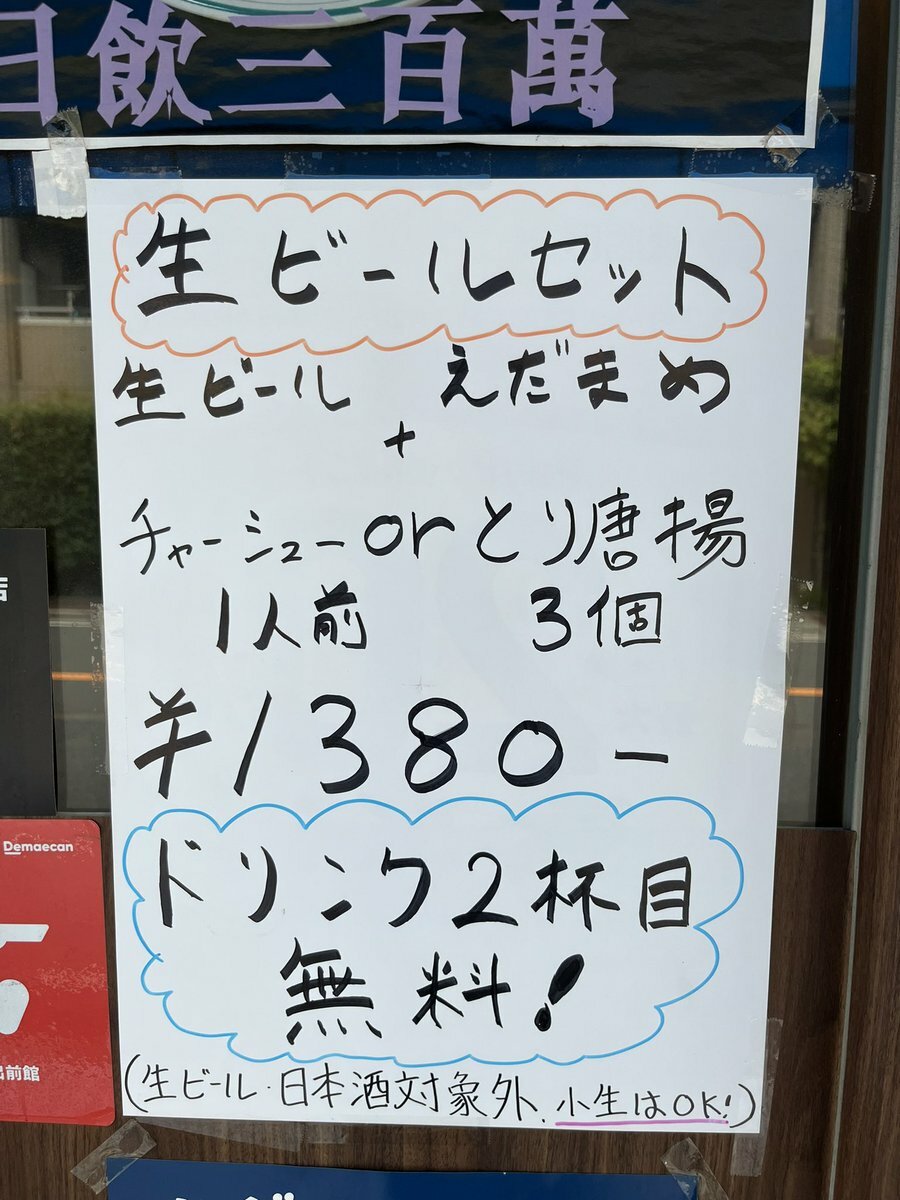 日飲三百萬
生ビールセット
生ビール えだまめ
+
チャーシュー or とり唐揚
1人前 3個
¥1380-
ドリンク2杯目
無料!
(生ビール・日本酒対象外、小生はOK!)
Demaecan
出前館
店